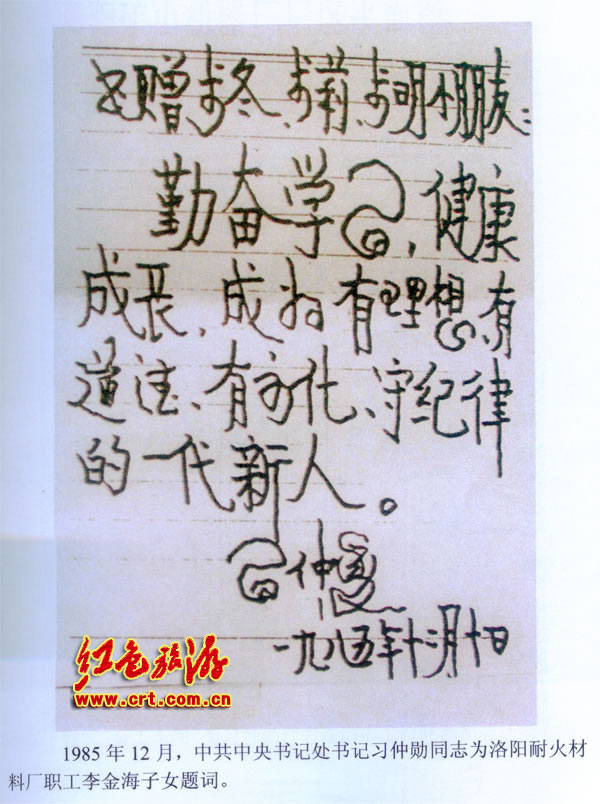 书赠步冬、步莉、步明小朋友：
勤奋学习，健康
成长，成为有理想、有
道德、有文化、守纪律
的一代新人。
习仲勋
一九八五年十二月十日
红色旅游
www.crt.com.cn
1985年12月，中共中央书记处书记习仲勋同志为洛阳耐火材
料厂职工李金海子女题词。